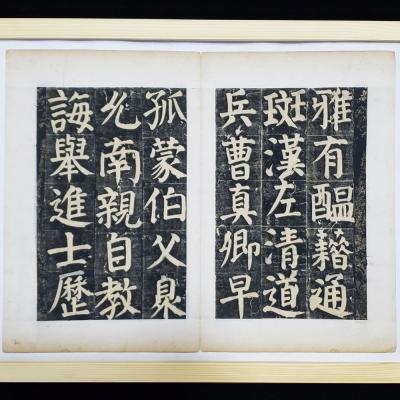 雅有醞藉通
班漢左清道
兵曹真卿早
孤蒙伯父臮
允南親自教
誨舉進士歷